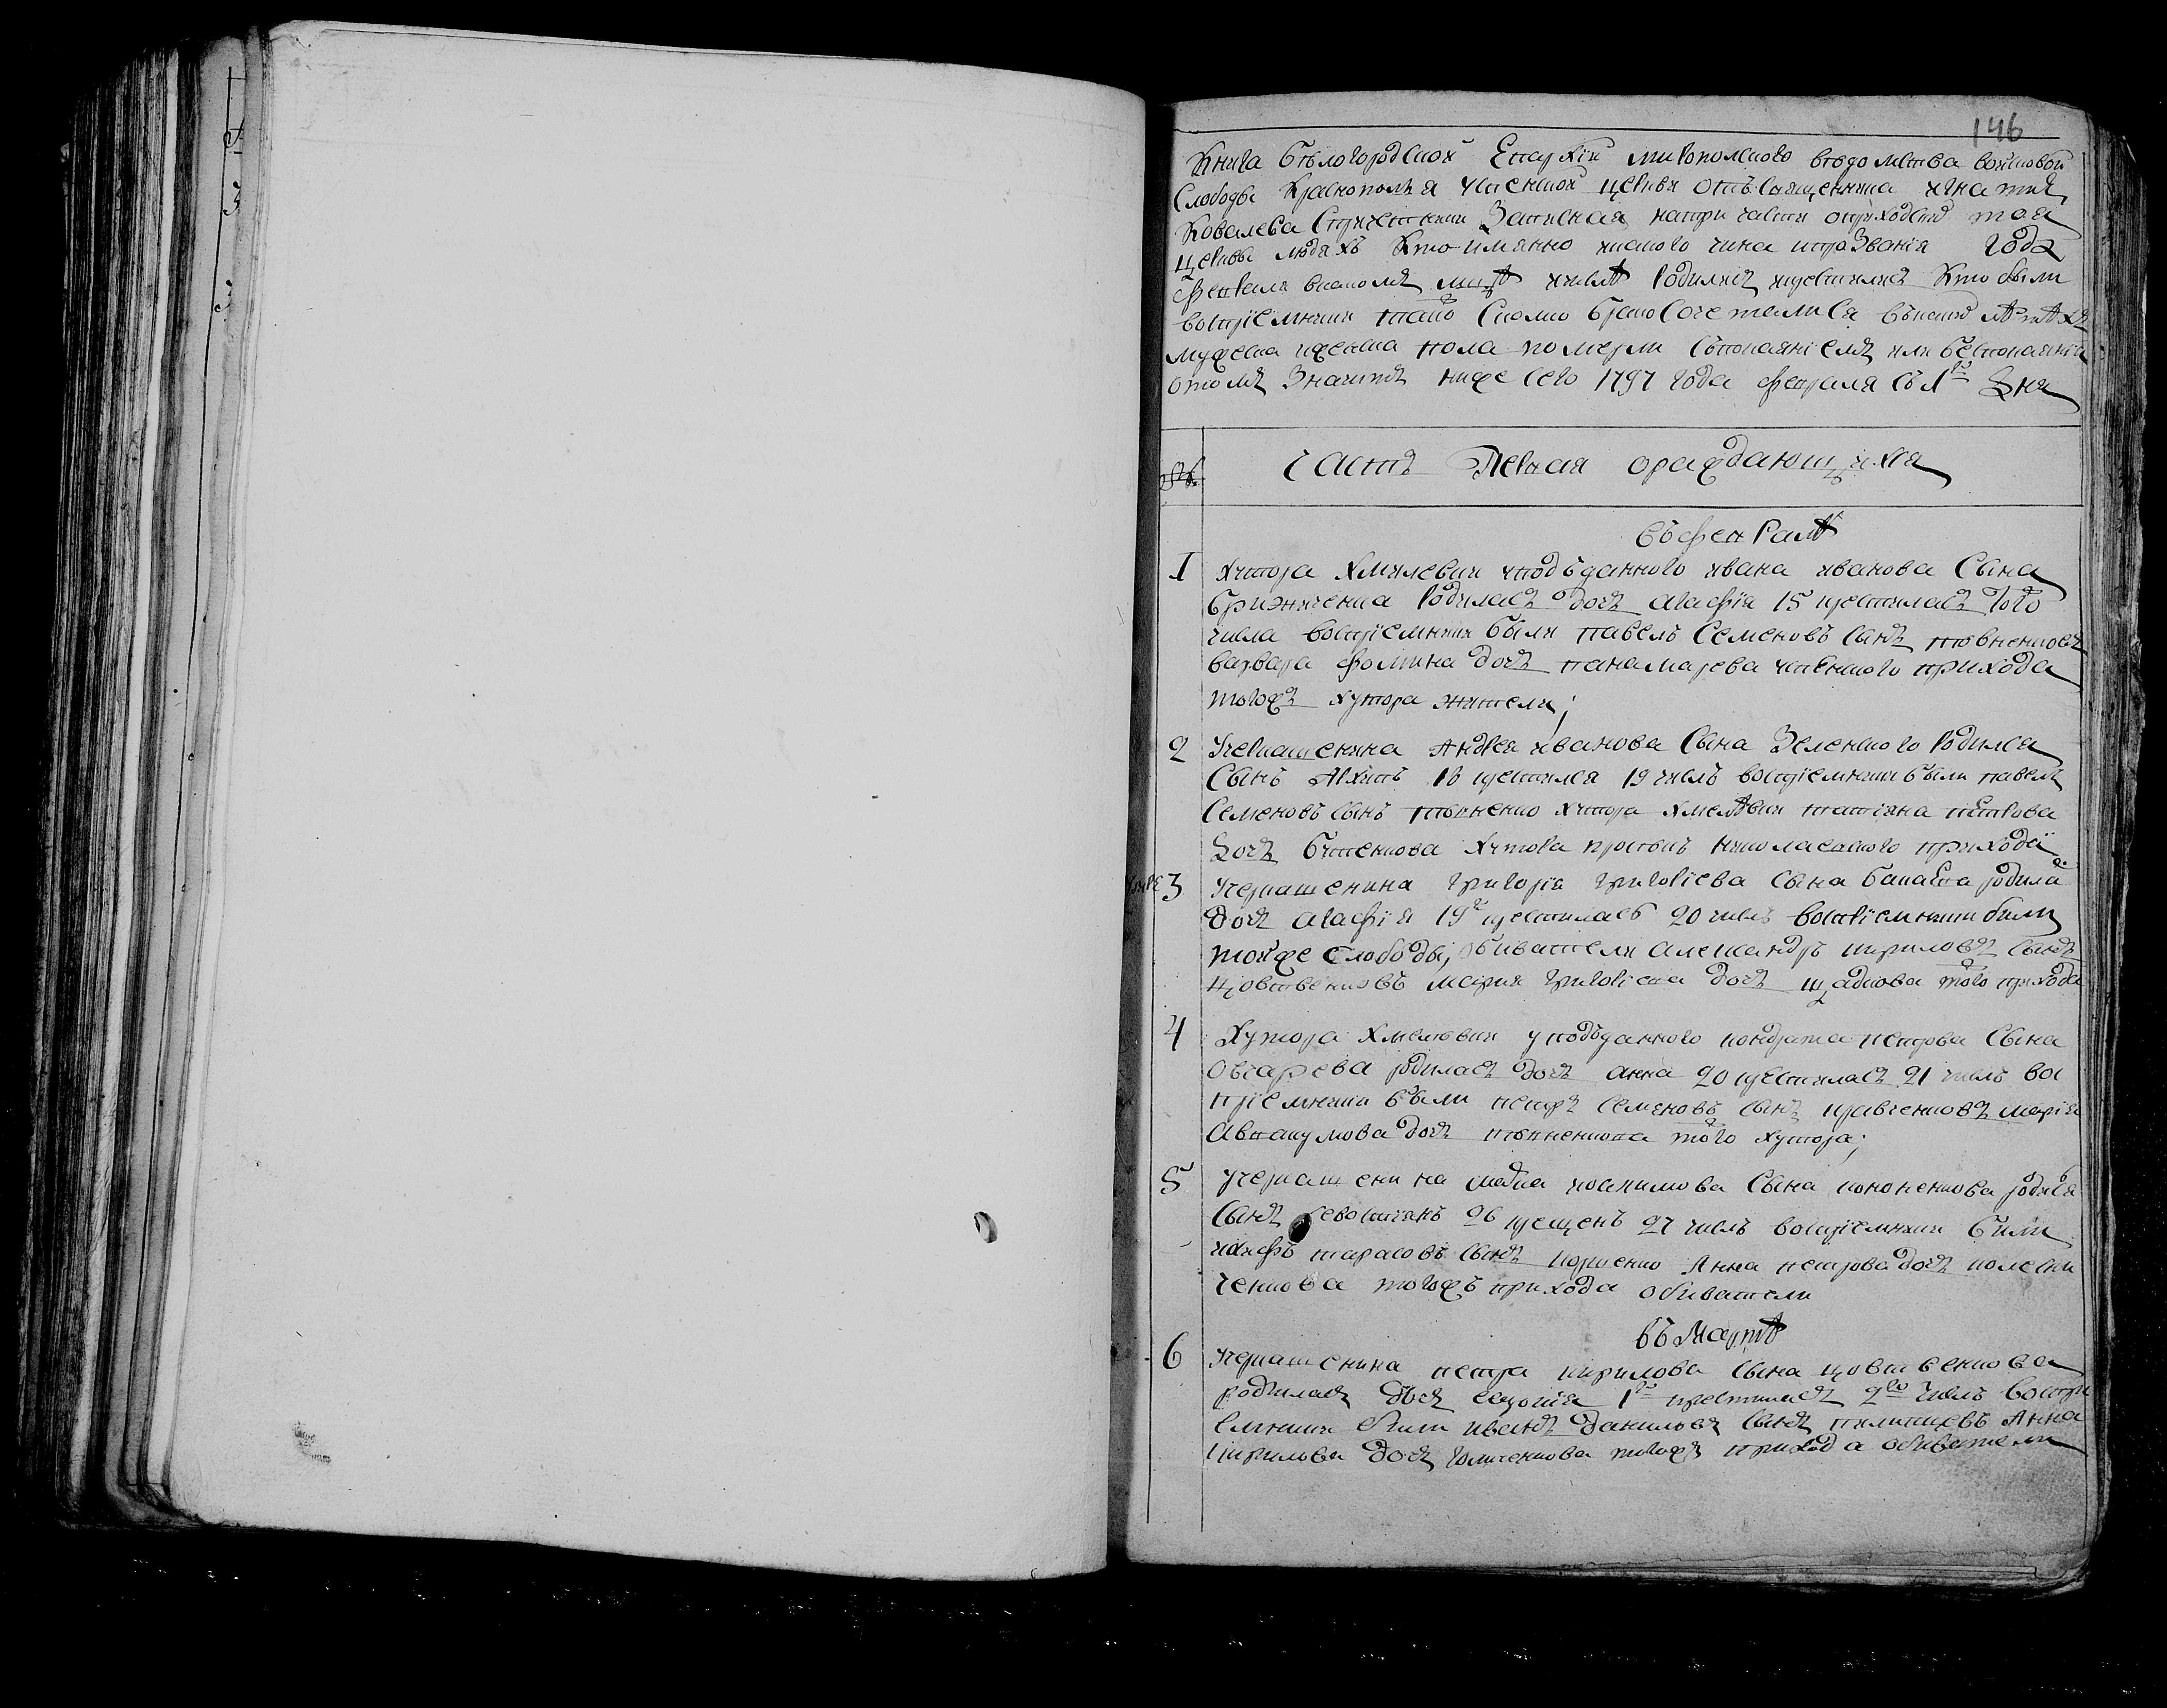 146
Книга бѣлогородской Епархїи мирополского вѣдомства войсковой
Слободы Краснополья успенской церкви отъ священника игнатия
Ковалева Спричетники Записная натри части оприходскихъ тоя
церкви людяхъ кто имянно икакого чина ипрозванїя года
февраля вкакомъ мцѣ ичислѣ родились икрестились кто были
воспрїемники тако скемъ бракосочетался вкакихъ лѣтахъ
мужеска иженска пола померли спокаянїемъ или беспокаянїя
отомъ Значитъ ниже сего 1797 года февраля съ 1го Дня
Часть Первая ораждающихся
въ февралѣ
1 хутора Хмилевки уподъданного ивана иванова Сына
родилась дочь агафїя 15 крестилась того
числа воспрїемники были павелъ Семеновъ сынъ
варвара фомина дочь панамарева успенского прихода
тогожъ хутора жители;
2 Учеркашенина Андрея иванова Сына Зеленского родился
Сынъ Архипъ 18 крестился 19 числъ воспрїемники были павелъ
Семеновъ сынъ хутора Хмелѣвки татїяна петрова
Дочь хутора николаевского прихода
3 Учеркашенина григорїя григорїева Сына родила
дочь агафїя 19 крестилась 20 числъ воспрїемники были
тойже слободы, обиватели александръ кириловъ сынъ
мария григорїева дочь того прихода
4 Хутора Хмелевки уподъданного кондрата петрова Сына
Овчарева родилась дочь анна 20 крестилась 21 числъ вос
прїемники были петръ семеновъ сынъ кравченковъ марїя
Авакумова дочь того хутора;
5 учеркашенина иоакимова Сына кононенкова родился
сынъ севастиянъ 26 крещенъ 27 числъ воспрїемники были
тарасовъ сынъ Анна петрова дочь
ченкова тогожъ прихода обиватели
въ Мартѣ
6 Учеркашенина петра кирилова сына
родилась дочь евдокїя 1го крестилась 2го числъ воспри
емники были иванъ даниловъ сынъ Анна
кирилова дочь тогожъ прихода обиватели